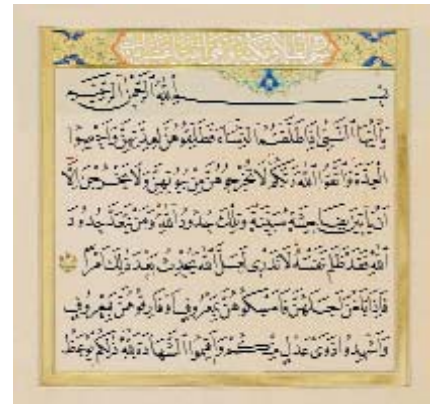 بِسْمِ ٱللَّهِ ٱلرَّحْمَٰنِ ٱلرَّحِيمِ
يَٰٓأَيُّهَا ٱلنَّبِىُّ إِذَا طَلَّقْتُمُ ٱلنِّسَآءَ فَطَلِّقُوهُنَّ لِعِدَّتِهِنَّ وَأَحْصُوا۟
ٱلْعِدَّةَ وَٱتَّقُوا۟ ٱللَّهَ رَبَّكُمْ لَا تُخْرِجُوهُنَّ مِنۢ بُيُوتِهِنَّ وَلَا يَخْرُجْنَ إِلَّآ
أَن يَأْتِينَ بِفَٰحِشَةٍ مُّبَيِّنَةٍ وَتِلْكَ حُدُودُ ٱللَّهِ وَمَن يَتَعَدَّ حُدُودَ
ٱللَّهِ فَقَدْ ظَلَمَ نَفْسَهُۥ لَا تَدْرِى لَعَلَّ ٱللَّهَ يُحْدِثُ بَعْدَ ذَٰلِكَ أَمْرًا
فَإِذَا بَلَغْنَ أَجَلَهُنَّ فَأَمْسِكُوهُنَّ بِمَعْرُوفٍ أَوْ فَارِقُوهُنَّ بِمَعْرُوفٍ
وَأَشْهِدُوا۟ ذَوَىْ عَدْلٍ مِّنكُمْ وَأَقِيمُوا۟ ٱلشَّهَٰدَةَ لِلَّهِ ذَٰلِكُمْ يُوعَظُ